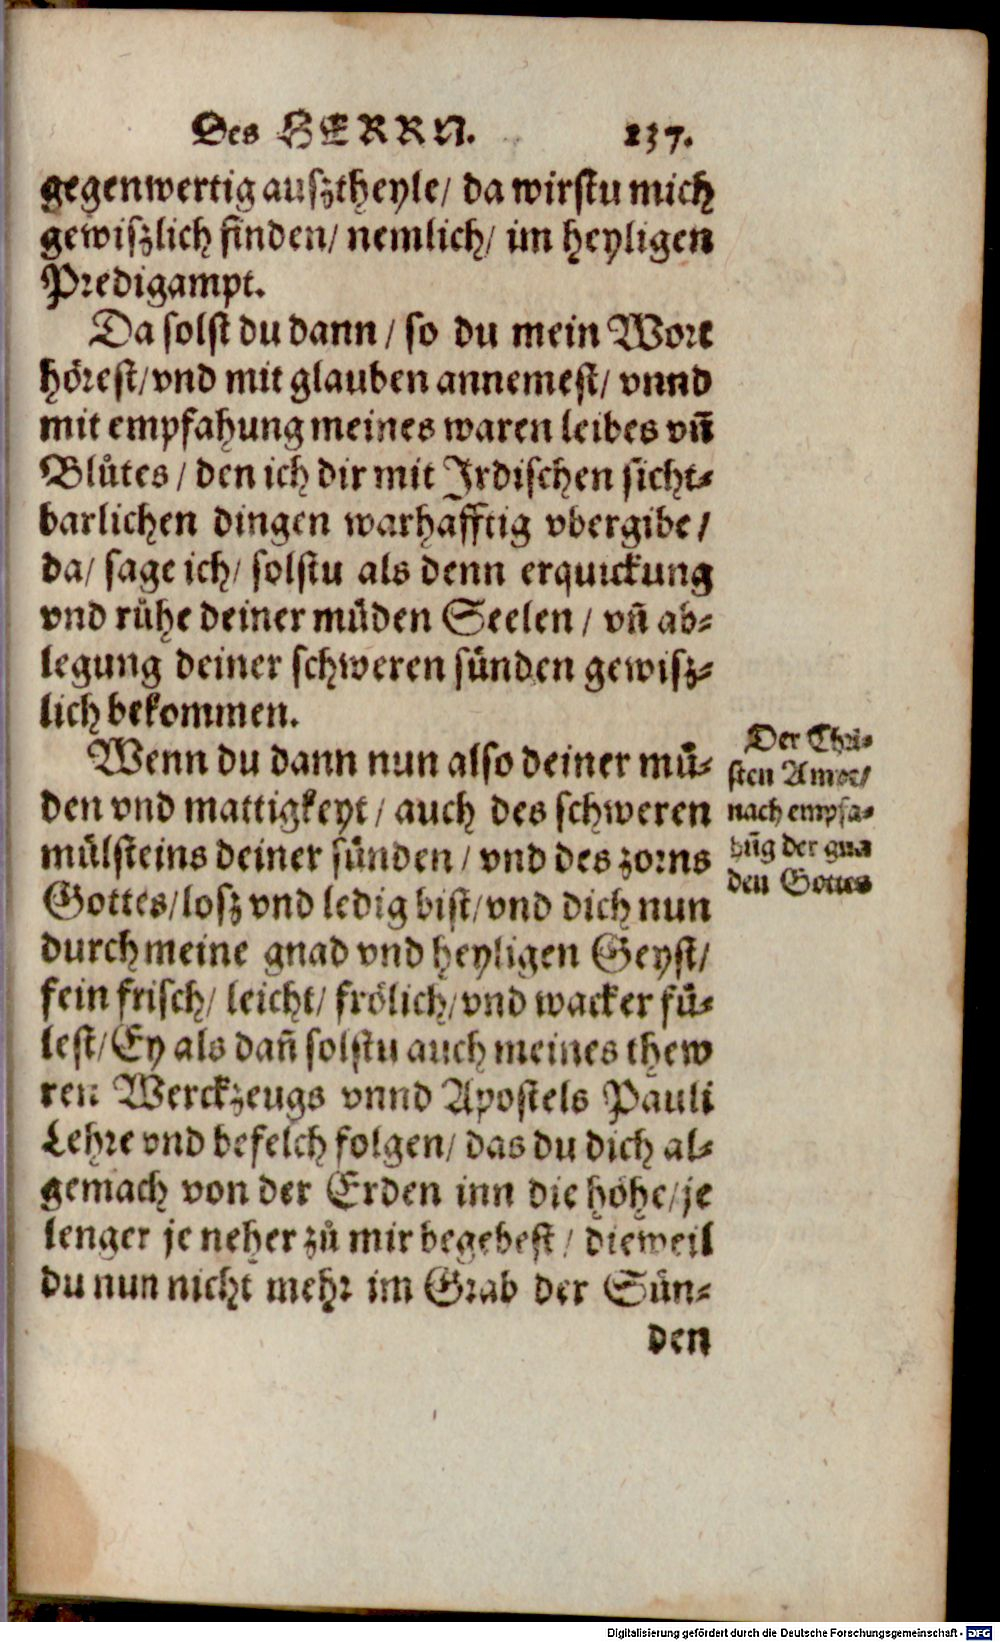 Des HERRN. 237.
gegenwertig auſztheyle/ da wirſtu mich
gewiſzlich finden/ nemlich/ im heyligen
Predigampt.
Da ſolſt du dann / ſo du mein Wort
höreſt/ vnd mit glauben annemeſt/ vnnd
mit empfahung meines waren leibes vñ
Blůtes / den ich dir mit Irdiſchen ſicht⸗
barlichen dingen warhafftig vbergibe /
da/ ſage ich/ ſolſtu als denn erquickung
vnd růhe deiner müden Seelen / vñ ab⸗
legung deiner ſchweren ſünden gewiſz⸗
lich bekommen.
Wenn du dann nun alſo deiner mü⸗
den vnd mattigkeyt / auch des ſchweren
mülſteins deiner ſünden / vnd des zorns
Gottes/ loſz vnd ledig biſt/ vnd dich nun
durch meine gnad vnd heyligen Geyſt/
fein friſch/ leicht/ frölich/ vnd wacker fü⸗
leſt/ Ey als dañ ſolſtu auch meines thew
ren Werckzeugs vnnd Apoſtels Pauli
Lehre vnd befelch folgen/ das du dich al⸗
gemach von der Erden inn die höhe/ je
lenger je neher zů mir begebeſt / dieweil
du nun nicht mehr im Grab der Sün⸗
den
Der Chri⸗
ſten Ampt/
nach empfa⸗
hũg der gna
den Gottes
Digitalisierung gefördert durch die Deutsche Forschungsgemeinschaft - DFG